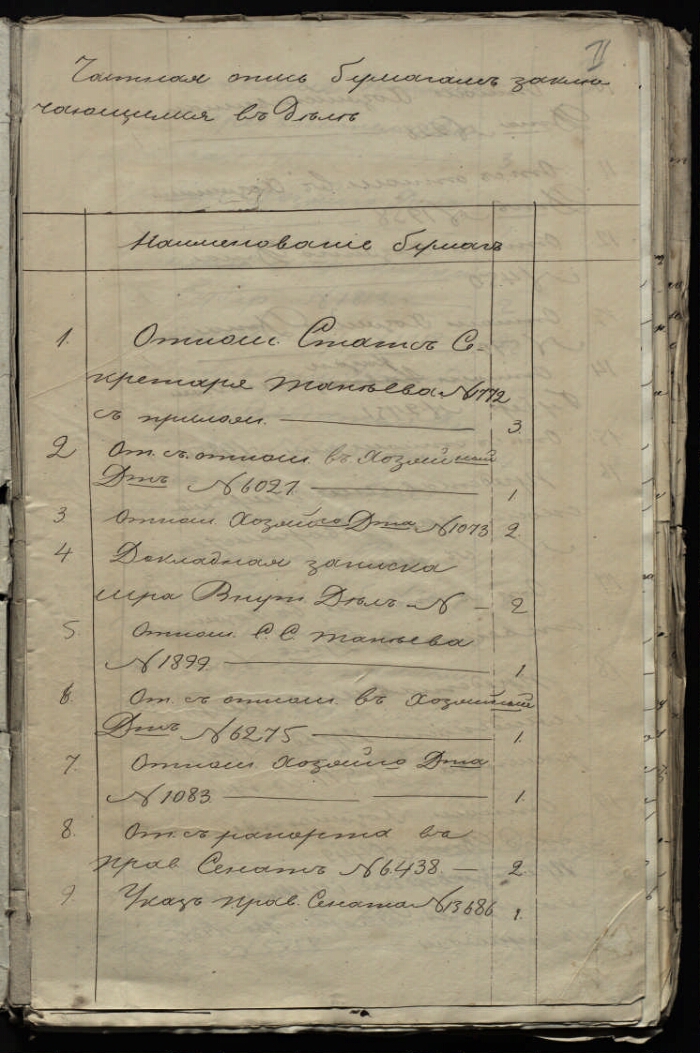 II
Частная опись бумагамъ заклю
чающимся въ Дѣлѣ
Наименованіе бумагъ
1. Отнош. Статсъ Се-
кретаря Танѣева №1772
съ прилож. — 3.
2 От. съ отнош. въ Хозяйный
Дтъ №6027. — 1.
3 Отнош Хозяйго Дта №1073 2.
4 Докладная записка
Мра Внут. Дѣлъ № — 2
5 Отнош. С. С Танѣева
№1899 — 1.
6. От. съ отнош. въ Хозяйный
Дтъ №6275 — 1.
7. Отнош Хозяйго Дта
№1083. — — 1.
8. От. съ рапорта въ
Прав Сенатъ №6438. — 2.
9 Указъ Прав. Сената №13686 1.